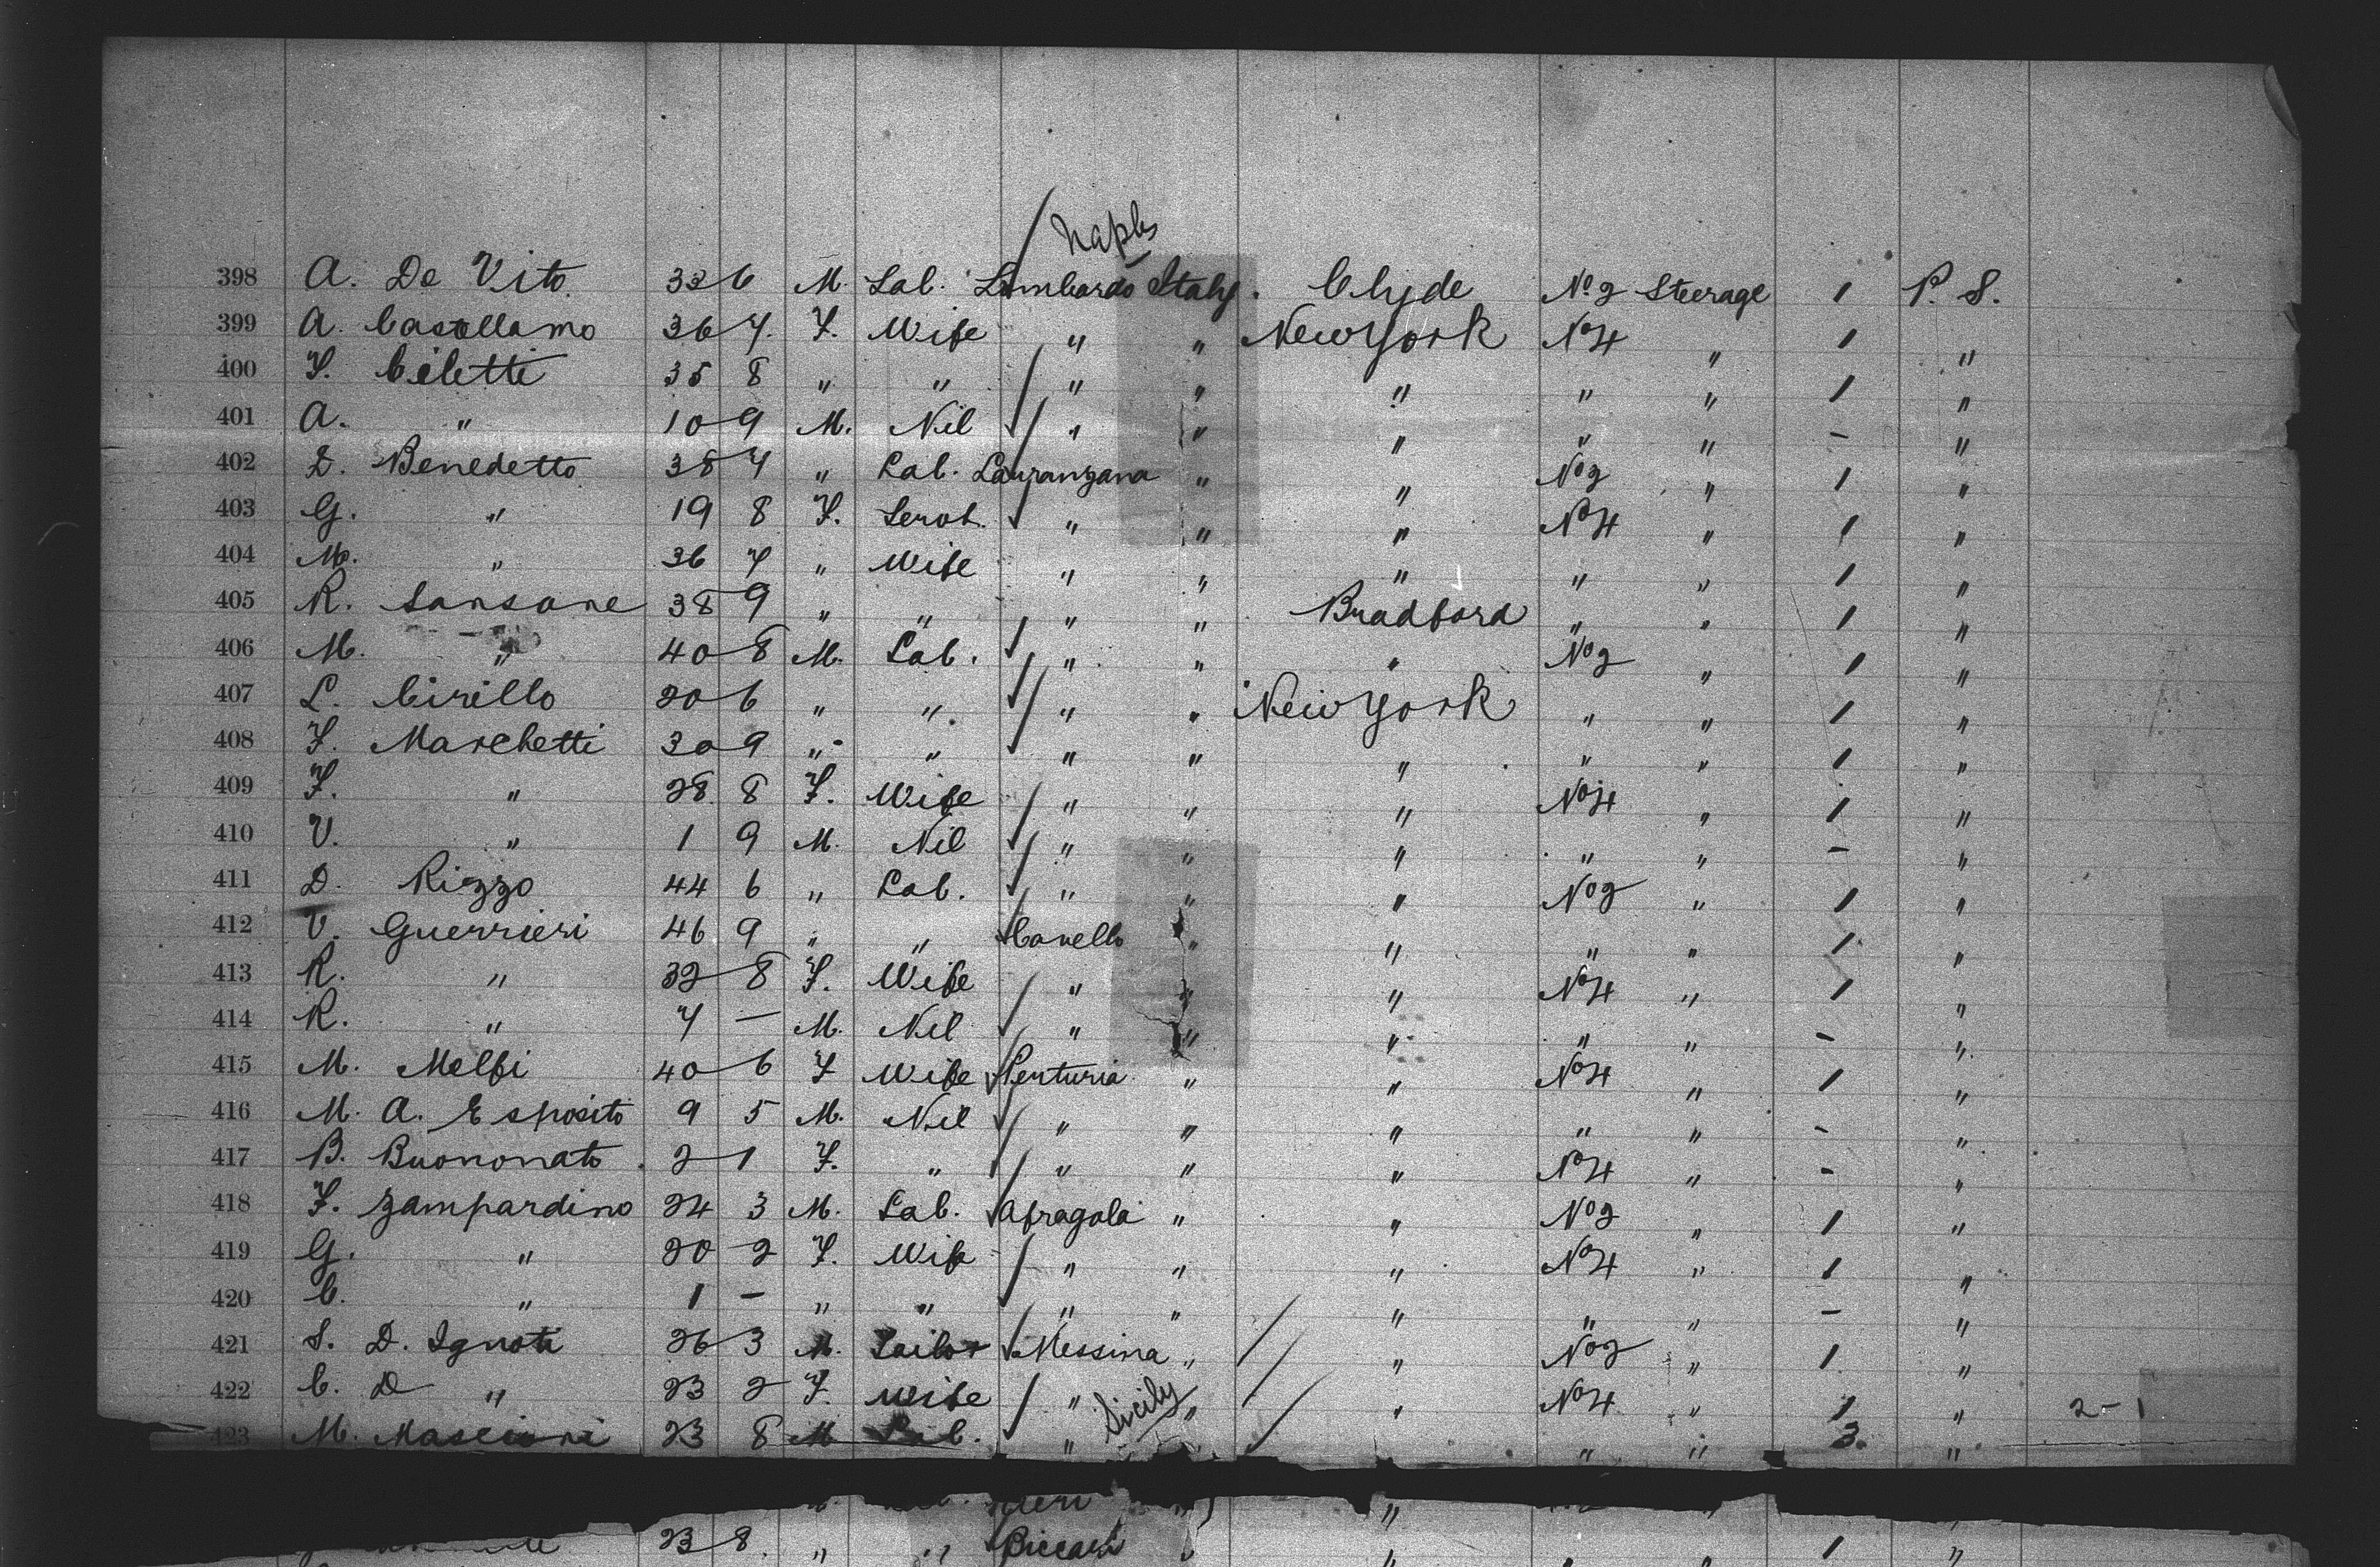 Naples
398 A. De Vito. 32 6 M. Lab. Lombardo Italy. Clyde No 2 Steerage 1 P. S.
399 A. Castellamo 36 7. F. Wife " " New York No 4 " 1 "
400 F. Ciletti 35 8 " " " " " " " 1 "
401 A. " 10 9 M. Nil " " " " " - "
402 D. Benedetto 38 7 " Lab. Lauranzana " " No 2 " 1 "
403 G. " 19 8 F. Servt. " " " No 4 " 1 "
404 M. " 36 7 " Wife " " " " " 1 "
405 R. Sansone 38 9 " " " " Bradford " " 1 "
406 M. " 40 8 M. Lab. " " " No 2 " 1 "
407 L. Cirillo 20 6 " " " " New York " " 1 "
408 F. Marchetti 30 9 " " " " " " " 1 "
409 F. " 28 8 F. Wife " " " No 4 " 1 "
410 V. " 1 9 M. Nil " " " " " - "
411 D. Rizzo 44 6 " Lab. " " " No 2 " 1 "
412 V. Guerrieri 46 9 " " " " " " 1 "
413 R. " 32 8 F. Wife " " " No 4 " 1 "
414 R. " 7 - M. Nil " " " " " - "
415 M. Melfi 40 6 F Wife Penturia " " No 4 " 1 "
416 M. A. Esposito 9 5 M. Nil " " " " " - "
417 B. Buononato 2 1 F. " " " " No 4 " - "
418 F. Zampardino 24 3 M. Lab. Afragola " " No 2 " 1 "
419 G. " 20 2 F. Wife " " " No 4 " 1 "
420 C. " 1 - " " " " " " " - "
421 S. D. Ignoti 26 3 M. Tailor Messina " " No 2 " 1 "
422 C. D " 23 2 F. Wife " Sicily " " No 4 " 1 " 2-1
423 M. Mascioni 23 8 M Lab. " " " 3. "
" " "
23 8. " " " " 1 "